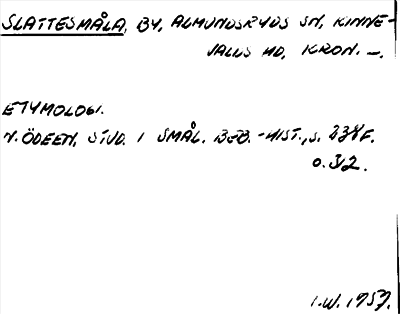 SLATTESMÅLA, BY, ALMUNDSRYDS SN, KINNE-
VALDS HD, KRON. —.
ETYMOLOGI.
N. ÖDEEN, STUD. I SMÅL. BEB.-HIST., S. 238 F.
O. 312.
I.W. 1957.